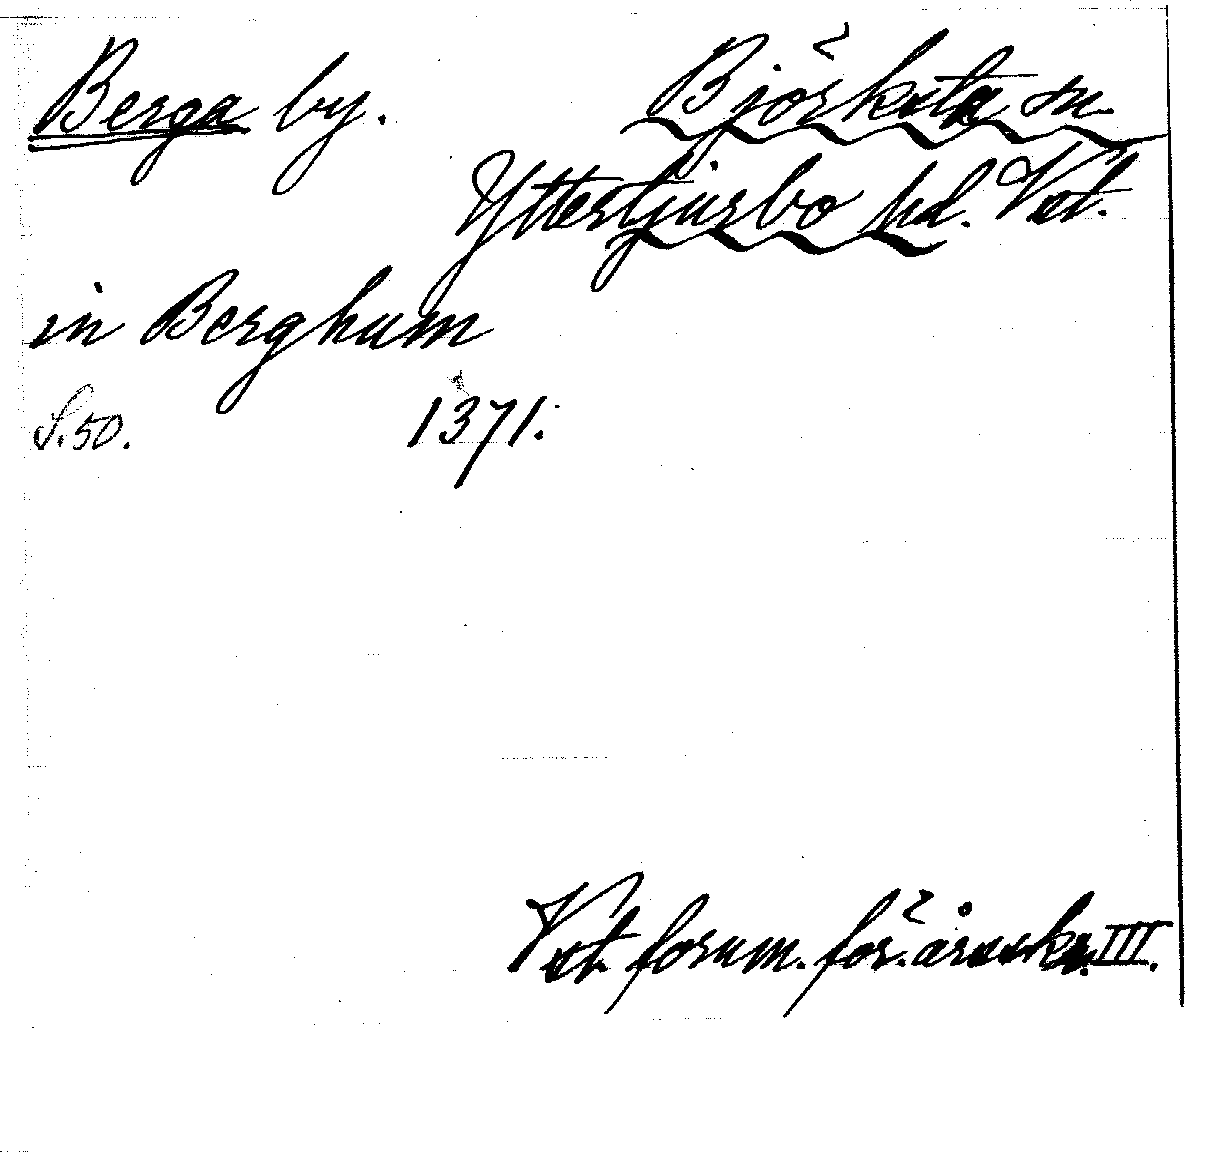 Berga by. Björksta sn
Yttertjurbo hd. Vst.
in Berghum
S. 50. 1371.
Vst. fornm. för. årsskr. III.